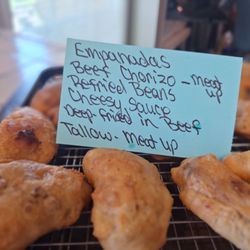 Empanadas
Beef Chorizo - meat up
Refried Beans
Cheesy Sauce
Deep Fried in Beef
Tallow - Meat Up